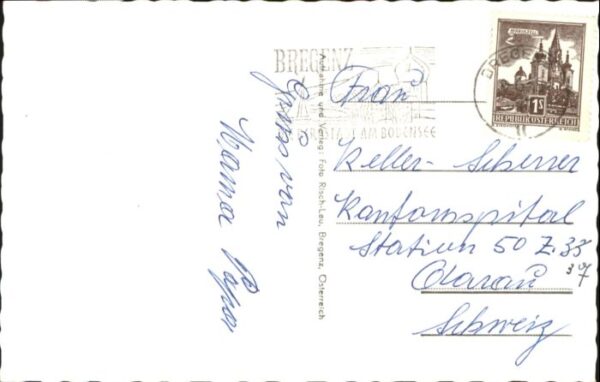 Gruss von
Mama Papa
Aufnahme und Verlag: Foto Risch-Lau, Bregenz, Österreich
BREGENZ
AM BODENSEE
MARIAZELL
1S
REPUBLIK ÖSTERREICH
BREGE
Frau
Keller-Scherrer
Kantonsspital
Station 50 Z.33
Aarau
Schweiz